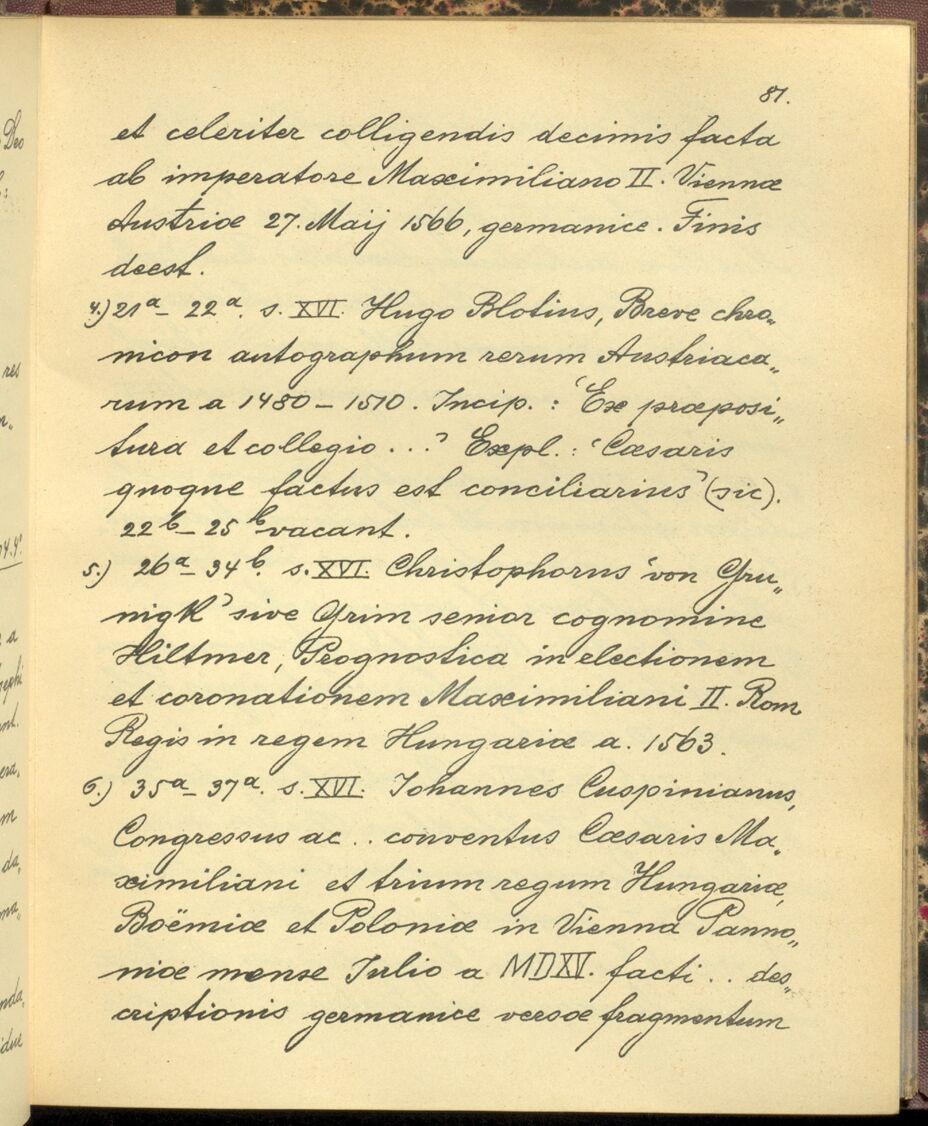 81.
et celeriter colligendis decimis facta
ab imperatore Maximiliano II. Viennæ
Austriæ 27. Maij 1566, germanice. Finis
deest.
4.) 21a– 22a. s. XVI. Hugo Blotius, Breve chro„
nicon autographum rerum Austriaca„
rum a 1480 – 1510. Incip. : ‘Ex præposi„
tura et collegio ...’ Expl.: ‘Cæsaris
quoque factus est conciliarius’ (sic).
22b– 25b vacant.
5.) 26a– 34b. s. XVI. Christophorus ‘von Gru„
nigk’ sive Grim senior cognomine
Hiltmer, Prognostica in electionem
et coronationem Maximiliani II. Rom
Regis in regem Hungariæ a. 1563.
6.) 35a– 37a. s. XVI. Iohannes Cuspinianus,
Congressus ac .. conventus Cæsaris Ma„
ximiliani et trium regum Hungariæ,
Boëmiæ et Poloniæ in Vienna Panno„
niæ mense Iulio a MDXV. facti .. des„
criptionis germanice versæ fragmentum